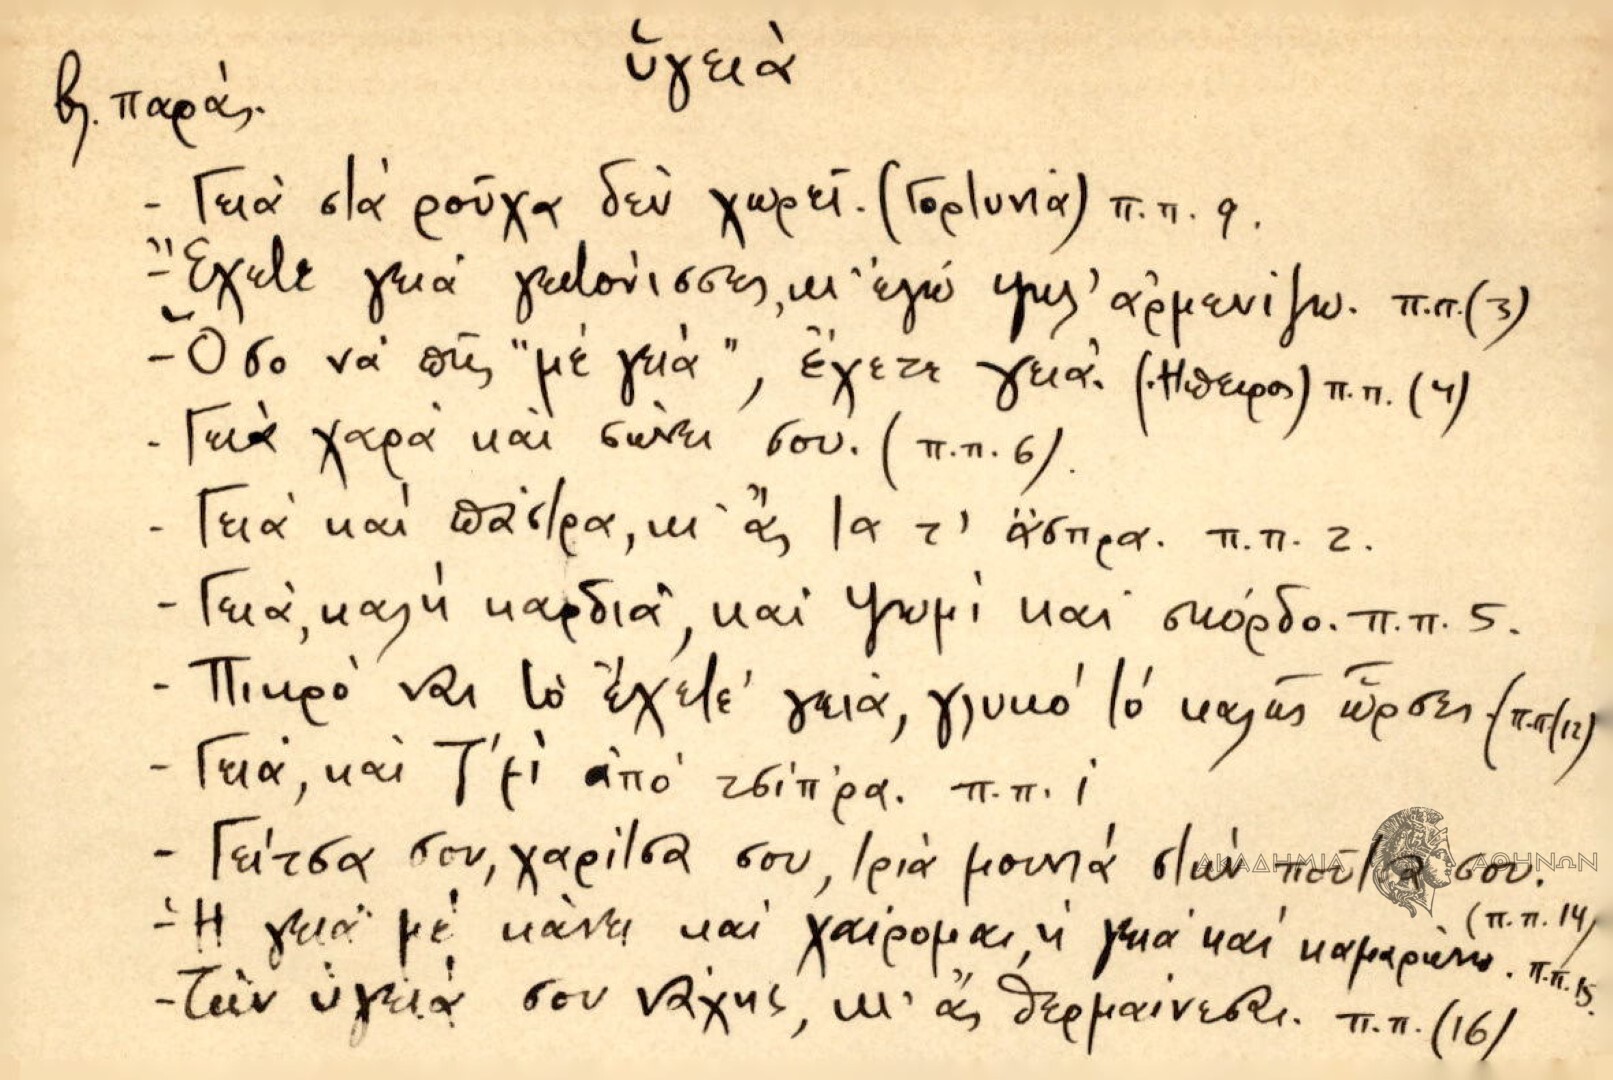 ὑγειὰ
βλ. παράς.
- Γειὰ στὰ ροῦχα δὲν χωρεῖ. (Γορτυνία) π.π. 9.
- Ἔχετε γειὰ γειτόνισσες, κι' ἐγὼ ψηλ' ἀρμενίζω. π.π. (3)
- Ὅσο νὰ πῆς "μὲ γειὰ", ἔχετε γειὰ. (Ἤπειρος) π.π. (4)
- Γειὰ χαρὰ καὶ σώνει σου. (π.π. 6).
- Γειὰ καὶ πάστρα, κι' ἂς τα τ' ἄσπρα. π.π. 2.
- Γειὰ, καλὴ καρδιὰ, καὶ ψωμὶ καὶ σκόρδο. π.π. 5.
- Πικρὸ ναι τὸ ἔχετε γειὰ, γλυκὸ τὸ καλῶς ὥρσες. (π.π. (12)
- Γειὰ, καὶ ἀπὸ τσίπρα. π.π. 1
- Γείτσα σου, χαρίτσα σου, τριὰ μουνιὰ στὴν ποῦτσα σου.
(π.π. 14)
- Ἡ γειὰ μὲ κάνει καὶ χαίρομαι, ἡ γειὰ καὶ καμαρώνω. π.π. 15.
- Τὴν ὑγειά σου νἄχης, κι' ἂς θερμαίνεσαι. π.π. (16)
ΑΚΑΔΗΜΙΑ ΑΘΗΝΩΝ